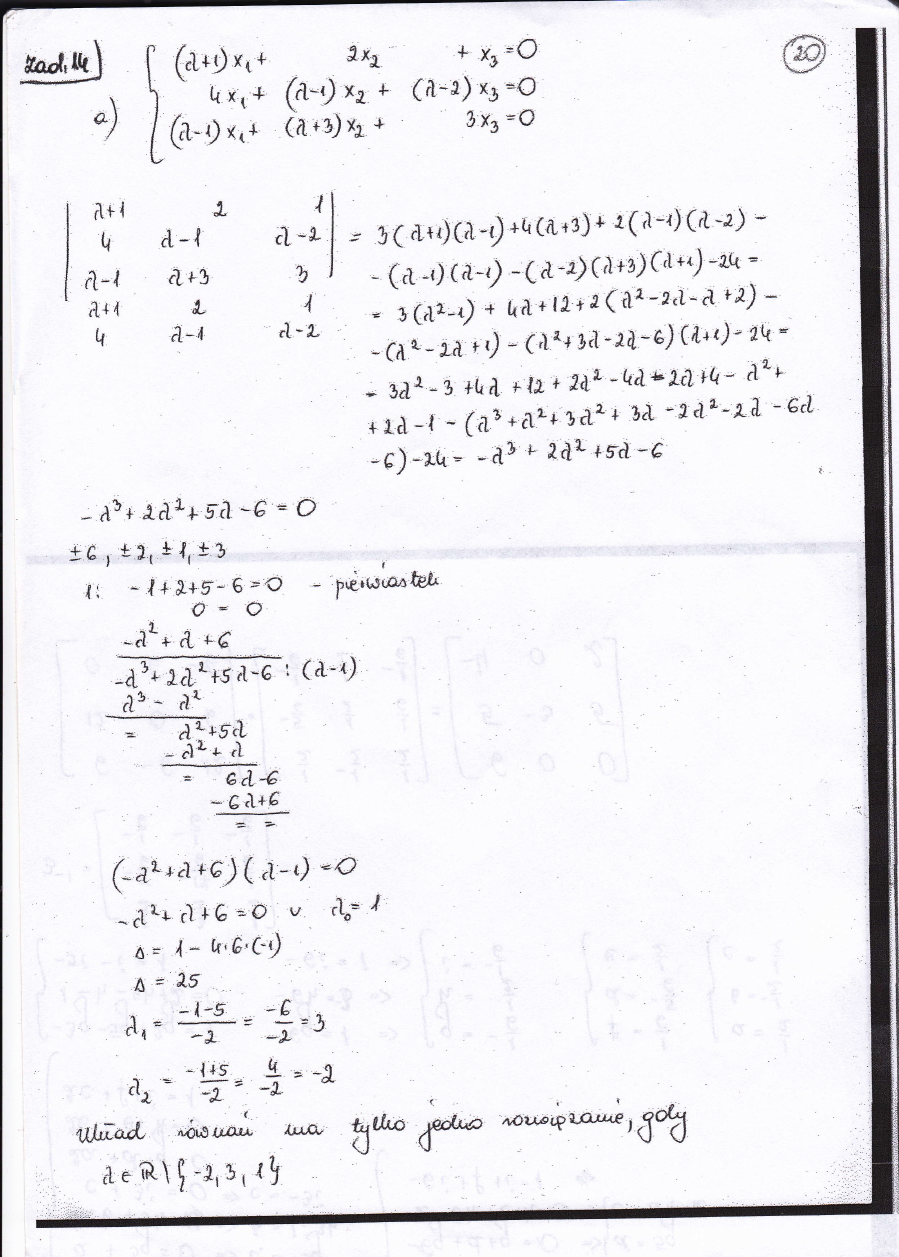 zad.14
20
a) { (λ+1)x₁+ 2x₂ + x₃=0
4x₁+ (λ-1)x₂ + (λ-2)x₃=0
(λ-1)x₁+ (λ+3)x₂ + 3x₃=0
| λ+1 2 1 |
| 4 λ-1 λ-2 | = 3(λ+1)(λ-1)+4(λ+3)+2(λ-1)(λ-2) -
| λ-1 λ+3 3 | -(λ-1)(λ-1) -(λ-2)(λ+3)(λ+1)-24 =
λ+1 2 1 = 3(λ²-1) + 4λ+12+2(λ²-2λ-λ+2) -
4 λ-1 λ-2 -(λ²-2λ+1) -(λ²+3λ-2λ-6)(λ+1)-24 =
= 3λ²-3+4λ+12+2λ²-4λ-2λ+4-λ²+
+2λ-1-(λ³+λ²+3λ²+3λ-2λ²-2λ-6λ
-6)-24= -λ³+2λ²+5λ-6
-λ³+2λ²+5λ-6=0
±6, ±2, ±1, ±3
1: -1+2+5-6=0 - pierwiastek
0 = 0
-λ²+λ+6
-λ³+2λ²+5λ-6 : (λ-1)
λ³-λ²
= λ²+5λ
-λ²+λ
= 6λ-6
-6λ+6
= =
(-λ²+λ+6)(λ-1)=0
-λ²+λ+6=0 ∨ λ₀=1
Δ= 1-4·6·(-1)
Δ= 25
λ₁ = -1-5/-2 = -6/-2 = 3
λ₂ = -1+5/-2 = 4/-2 = -2
Układ równań ma tylko jedno rozwiązanie, gdy
λ∈ℝ\{-2,3,1}